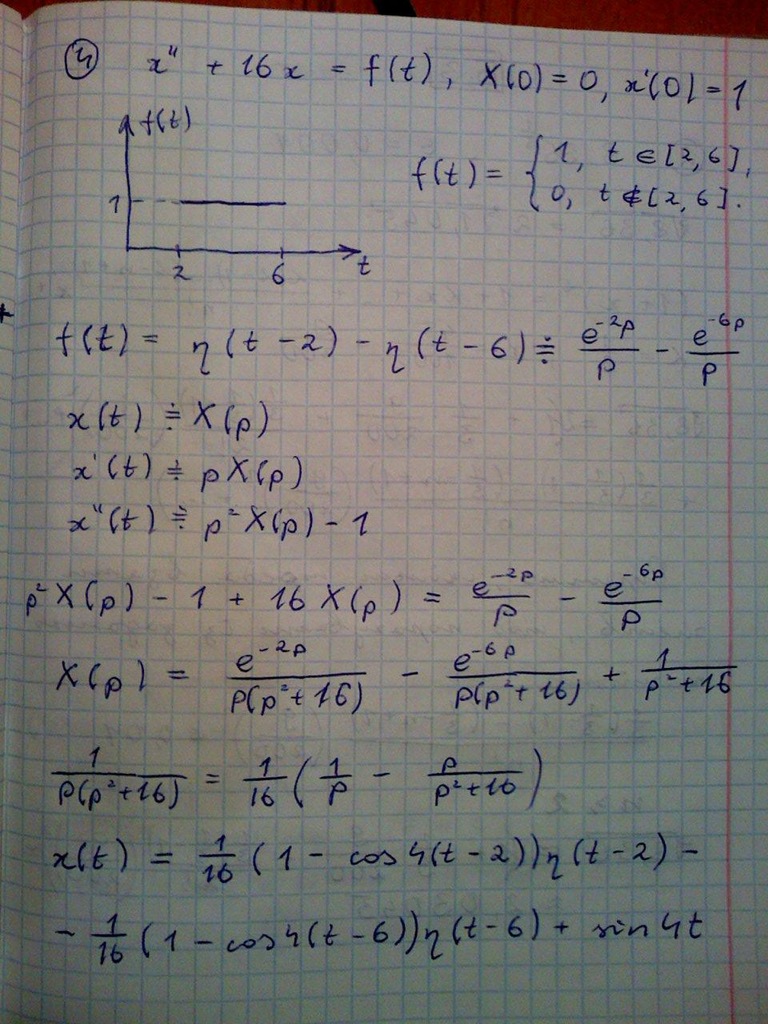 ④ x'' + 16x = f(t), X(0) = 0, x'(0) = 1
f(t)
1
2 6 t
f(t) = { 1, t ∈ [2, 6],
0, t ∉ [2, 6].
f(t) = η(t - 2) - η(t - 6) ≑ e^{-2p}/p - e^{-6p}/p
x(t) ≑ X(p)
x'(t) ≑ pX(p)
x''(t) ≑ p²X(p) - 1
p²X(p) - 1 + 16X(p) = e^{-2p}/p - e^{-6p}/p
X(p) = e^{-2p}/(p(p²+16)) - e^{-6p}/(p(p²+16)) + 1/(p²+16)
1/(p(p²+16)) = 1/16 (1/p - p/(p²+16))
x(t) = 1/16 (1 - cos4(t-2))η(t-2) -
- 1/16 (1 - cos4(t-6))η(t-6) + sin4t